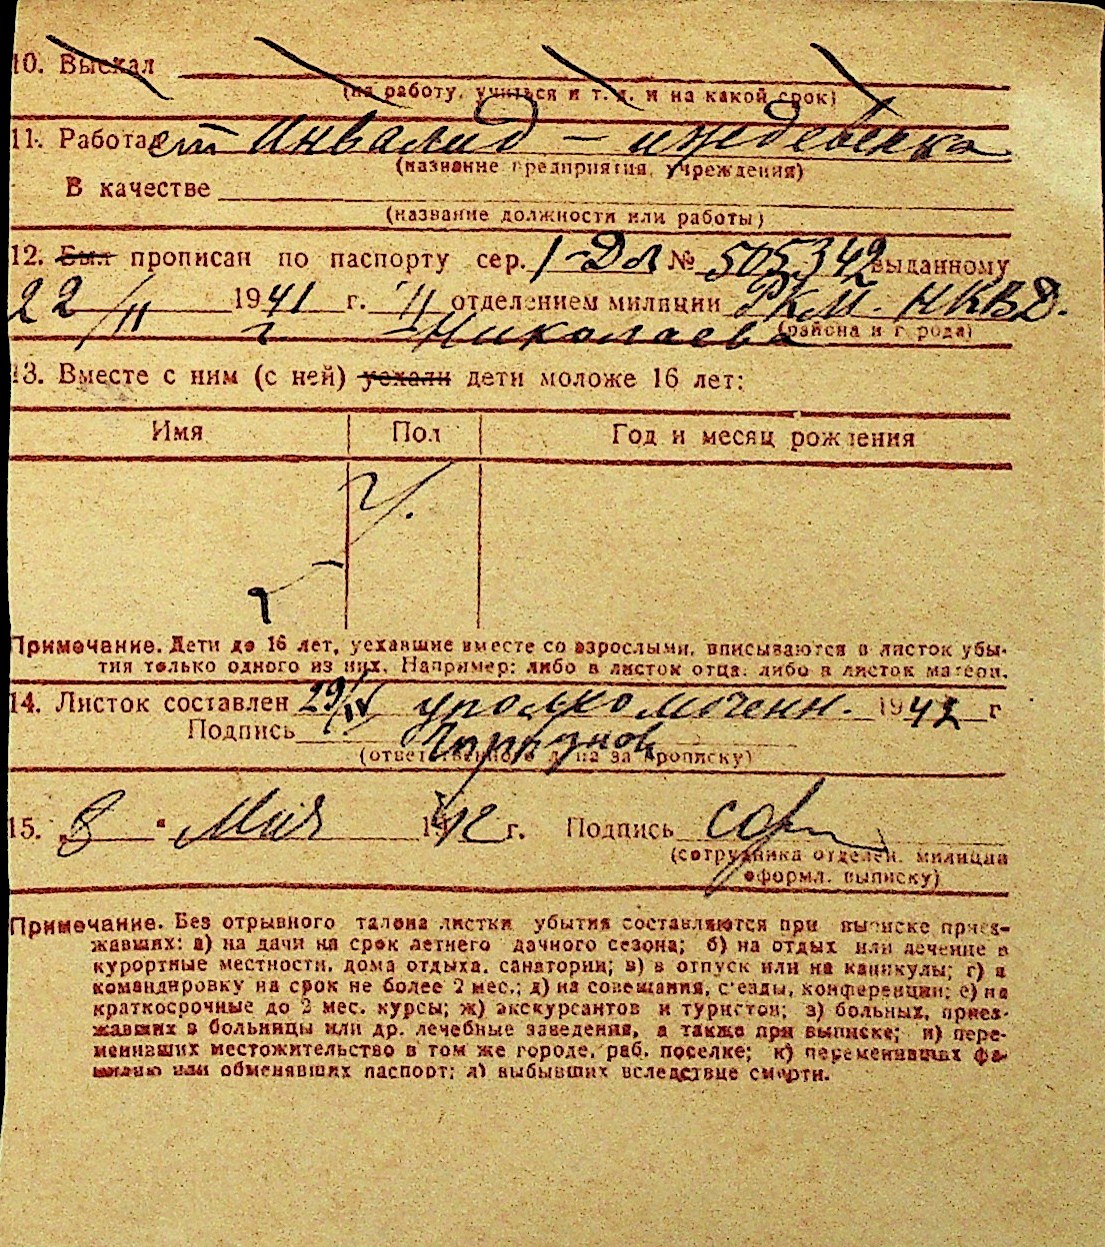 10. Выехал
(на работу, учиться и т. д. и на какой срок)
11. Работает Инвалид - иждевенка
(название предприятия, учреждения)
В качестве
(название должности или работы)
12. Был прописан по паспорту сер. № 505342 выданному
22/II 1941 г. II отделением милиции РКМ. НКВД.
г Николаева (района и города)
13. Вместе с ним (с ней) уехали дети моложе 16 лет:
Имя Пол Год и месяц рождения
Примечание. Дети до 16 лет, уехавшие вместе со взрослыми, вписываются в листок убы-
тия только одного из них. Например: либо в листок отца, либо в листок матери.
14. Листок составлен 29/IV уполномоченн. 1942 г
Подпись
(ответственного лица за прописку)
15. „8“ Мая 1942 г. Подпись
(сотрудника отделен. милиции
оформл. выписку)
Примечание. Без отрывного талона листки убытия составляются при выписке приез-
жавших: а) на дачи на срок летнего дачного сезона; б) на отдых или лечение в
курортные местности, дома отдыха, санатории; в) в отпуск или на каникулы; г) в
командировку на срок не более 2 мес.; д) на совещания, с'езды, конференции; е) на
краткосрочные до 2 мес. курсы; ж) экскурсантов и туристов; з) больных, приез-
жавших в больницы или др. лечебные заведения, а также при выписке; и) пере-
менивших местожительство в том же городе, раб. поселке; к) переменивших фа-
милию или обменявших паспорт; л) выбывших вследствие смерти.